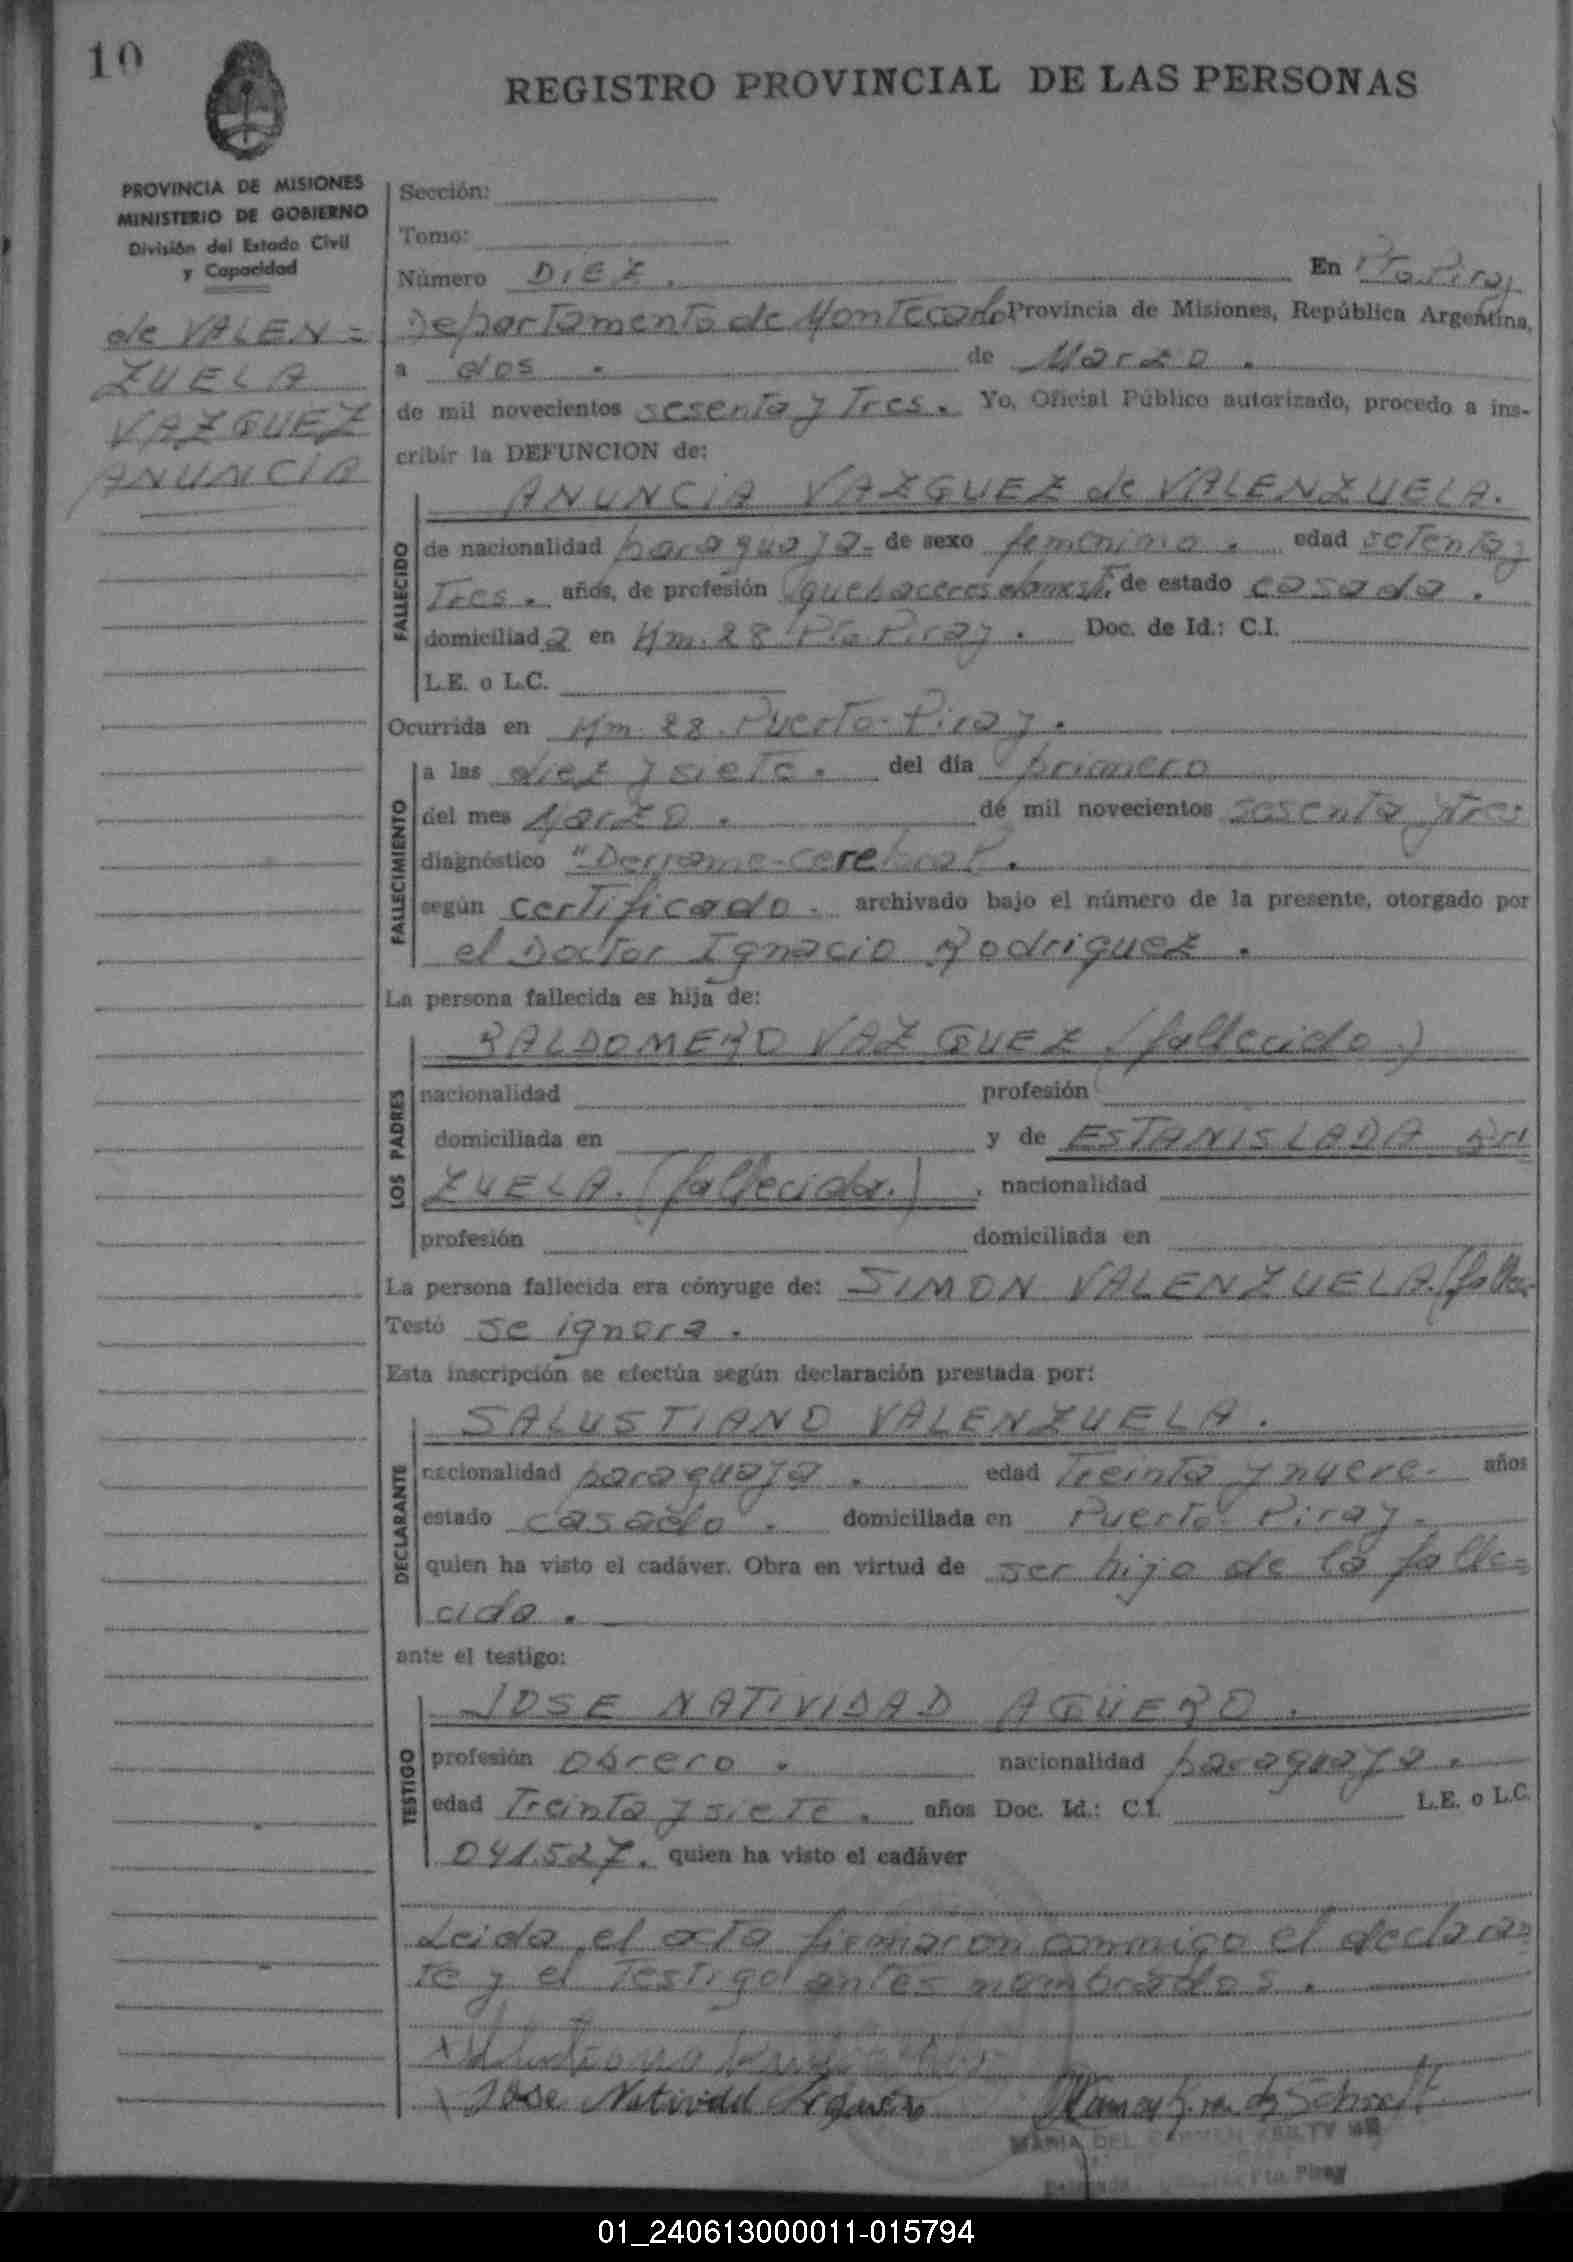 10
REGISTRO PROVINCIAL DE LAS PERSONAS
PROVINCIA DE MISIONES
MINISTERIO DE GOBIERNO
División del Estado Civil
y Capacidad
de VALEN=
ZUELA
VAZQUEZ
ANUNCIA
Sección:
Tomo:
Número DIEZ. En Pto. Piray
Departamento de Montecarlo Provincia de Misiones, República Argentina,
a dos. de Marzo.
de mil novecientos sesenta y Tres. Yo, Oficial Público autorizado, procedo a ins-
cribir la DEFUNCION de:
ANUNCIA VAZQUEZ de VALENZUELA.
FALLECIDO
de nacionalidad paraguaya- de sexo femenino. edad setenta y
Tres. años, de profesión quehaceres domest. de estado casada.
domiciliada en Km. 28 Pto Piray. Doc. de Id.: C.I.
L.E. o L.C.
Ocurrida en Km. 28. Puerto-Piray.
FALLECIMIENTO
a las diez y siete. del día primero
del mes Marzo. de mil novecientos sesenta y tres
diagnóstico "Derrame-cerebral".
según certificado. archivado bajo el número de la presente, otorgado por
el Doctor Ignacio Rodriguez.
La persona fallecida es hija de:
LOS PADRES
BALDOMERO VAZQUEZ (fallecido)
nacionalidad profesión
domiciliada en y de ESTANISLADA
ZUELA. (fallecida.), nacionalidad
profesión domiciliada en
La persona fallecida era cónyuge de: SIMON VALENZUELA. (fallec.
Testó se ignora.
Esta inscripción se efectúa según declaración prestada por:
DECLARANTE
SALUSTIANO VALENZUELA.
nacionalidad paraguaya. edad Treinta y nueve- años
estado casado. domiciliada en Puerto-Piray.
quien ha visto el cadáver. Obra en virtud de ser hijo de la falle=
cida.
ante el testigo:
TESTIGO
JOSE NATIVIDAD AGÜERO.
profesión obrero. nacionalidad paraguaya.
edad Treinta y siete. años Doc. Id.: C.I. L.E. o L.C.
041.527. quien ha visto el cadáver
Leida el acta firmaron conmigo el declaran=
te y el Testigo antes nombrados.
Jose Natividad Aguero
MARIA DEL CARMEN
Pto. Piray
01_240613000011-015794